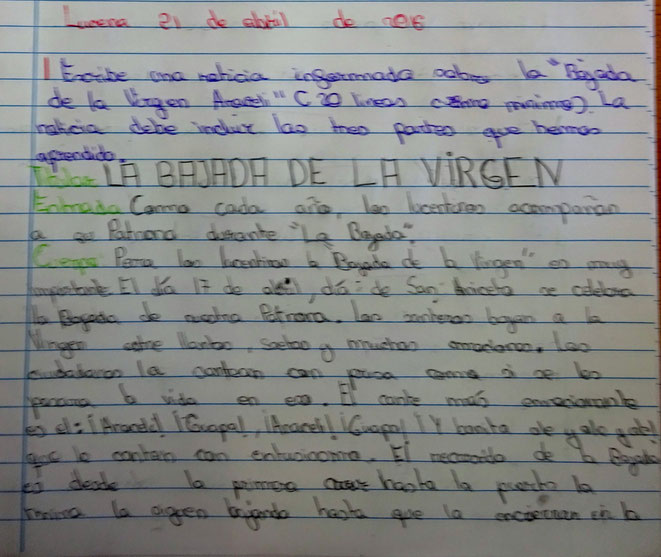 Lucena 21 de abril de 2016
Escribe una noticia informada sobre la "Bajada
de la Virgen Araceli" (20 lineas como minimo). La
noticia debe incluir las tres partes que hemos
aprendido.
Titular LA BAJADA DE LA VIRGEN
Entrada Como cada año, los lucentinos acompañan
a su Patrona durante "La Bajada".
Cuerpo Para los lucentinos la Bajada de la Virgen" es muy
importante El día 17 de abril, día de San Aniceto se celebra
la Bajada de nuestra Patrona. Los santeros bajan a la
Virgen entre llantos, saetas y muchas emociones. Los
la cantan con como si se les
la vida en eso. El cante más emocionante
es el: ¡Araceli! ¡Guapa!, ¡Araceli! ¡Guapa! ¡Y bonita ole y ole y ole!
que le cantan con entusiasmo. El recorrido de la Bajada
es desde la primera hasta la puerta la
la virgen bajando hasta que la en la